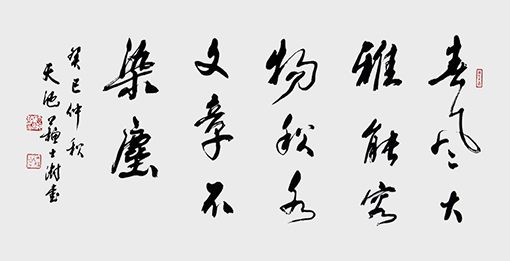 春风大
雅能容
物秋水
文章不
染塵
癸巳仲秋
天池蘇士澍書